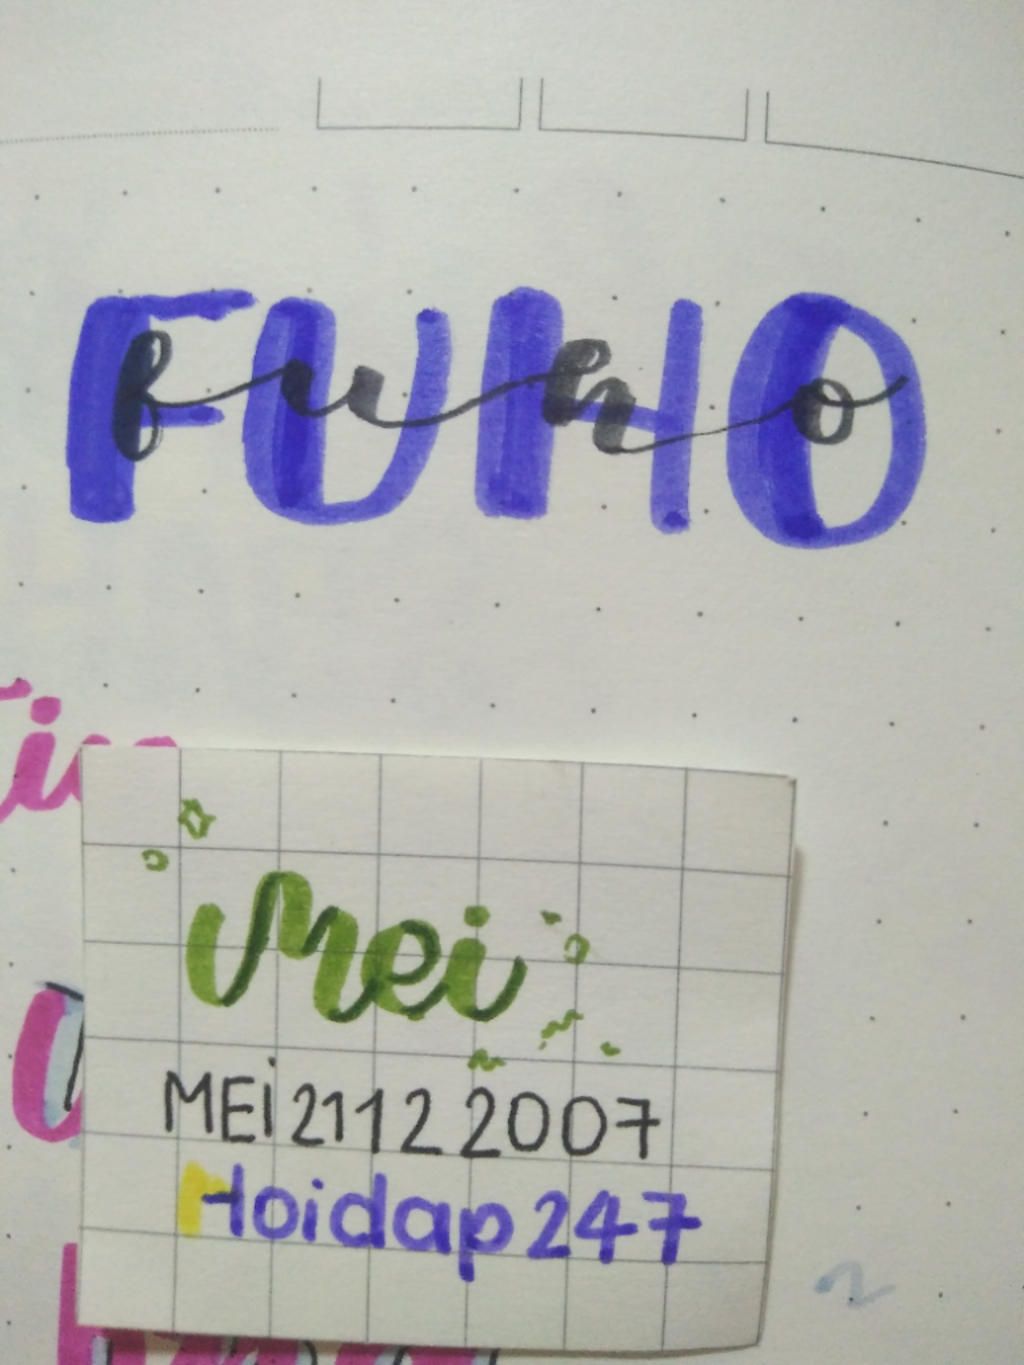 FUHO
fuho
Mei
MEi 2112 2007
Hoidap247